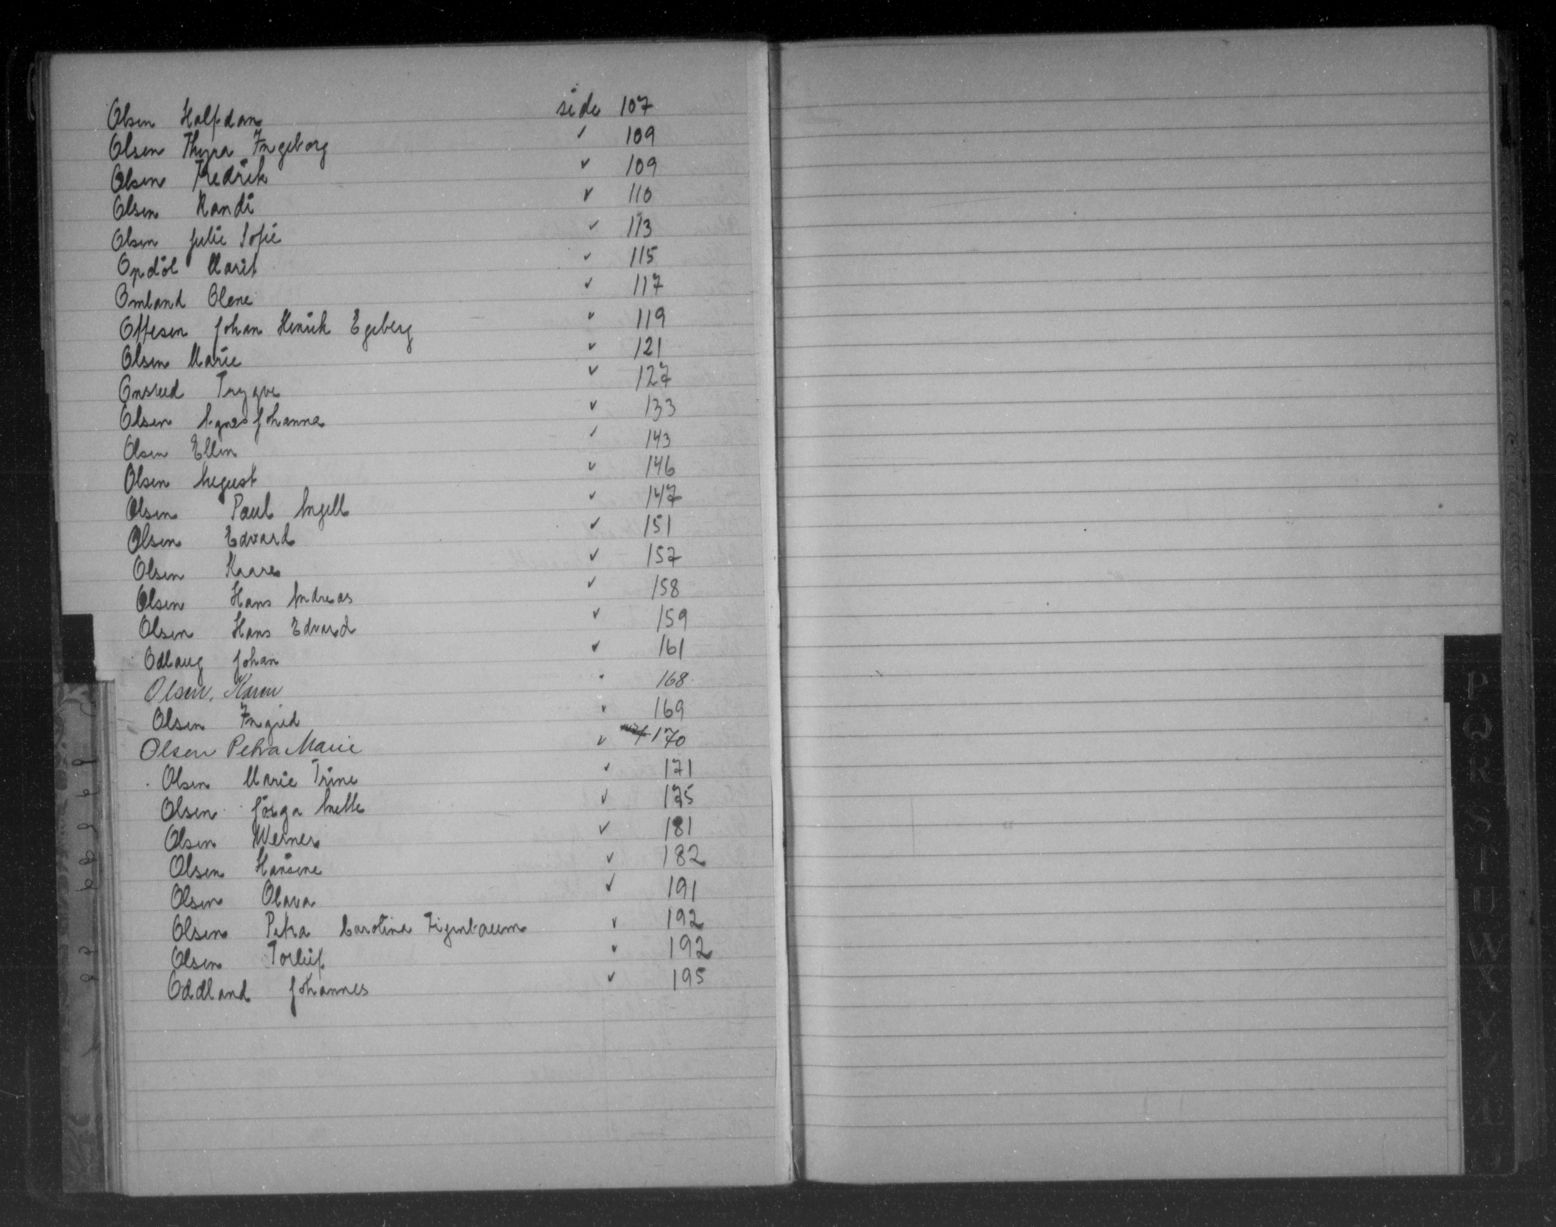 Olsen Halfdan side 107
Olsen Thyra Ingeborg ✓ 109
Olsen Fredrik ✓ 109
Olsen Randi ✓ 110
Olsen Julie Sofie ✓ 113
Opdöl Marit ✓ 115
Omland Olene ✓ 117
Offesen Johan Henrik Egeberg ✓ 119
Olsen Marie ✓ 121
Onsrud Trygve ✓ 127
Olsen Agnes Johanne ✓ 133
Olsen Ellen ✓ 143
Olsen August ✓ 146
Olsen Paul Angell ✓ 147
Olsen Edvard ✓ 151
Olsen Kaare ✓ 157
Olsen Hans Andreas ✓ 158
Olsen Hans Edvard ✓ 159
Odlaug Johan ✓ 161
Olsen, Karen 168
Olsen Ingrid ✓ 169
Olsen Petra Marie ✓ 170
Olsen Marie Trine ✓ 171
Olsen Anette ✓ 175
Olsen Werner ✓ 181
Olsen Hansine ✓ 182
Olsen Olava ✓ 191
Olsen Petra Carolina ✓ 192
Olsen Torleif ✓ 192
Oddland Johannes ✓ 195
P
Q
R
S
T
U
W
X
Y